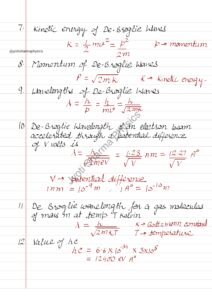 7. Kinetic energy of De-Broglie Waves
K = 1/2 mv² = p²/2m
K → kinetic energy
P → momentum
8. Momentum of De-Broglie Waves
P = √2mK
9. Wavelengths of De-Broglie Waves
λ = h/p = h/mv = h/√2mK
10. De-Broglie Wavelength of an electron beam
accelerated through a potential difference
of V volts is
λ = h/√2meV = 1.23/√V nm = 12.27/√V A°
V → potential difference
1nm = 10⁻⁹ m , 1A° = 10⁻¹⁰ m
11. De Broglie wavelength for a gas molecules
of mass m at temp T kelvin
λ = h/√2mKT
K → Boltzmann constant
T → temperature
12. Value of hc
hc = 6.6 X 10⁻³⁴ X 3X10⁸
= 12400 eV A°